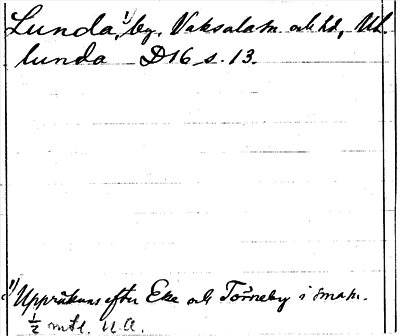 Lunda,¹⁾ by, Vaksala sn och hd, Upl.
lunda D16 s. 13.
¹⁾ Uppräknas efter Eke och Törneby i sma sn.
½ mtl. U.A.